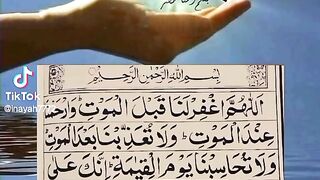 TikTok
بِسْمِ اللّٰهِ الرَّحْمٰنِ الرَّحِيْمِ
اَللّٰهُمَّ اغْفِرْلَنَا قَبْلَ الْمَوْتِ وَارْحَمْنَا
عِنْدَ الْمَوْتِ وَلَا تُعَذِّبْنَا بَعْدَ الْمَوْتِ
وَلَا تُحَاسِبْنَا يَوْمَ الْقِيٰمَةِ اِنَّكَ عَلٰى